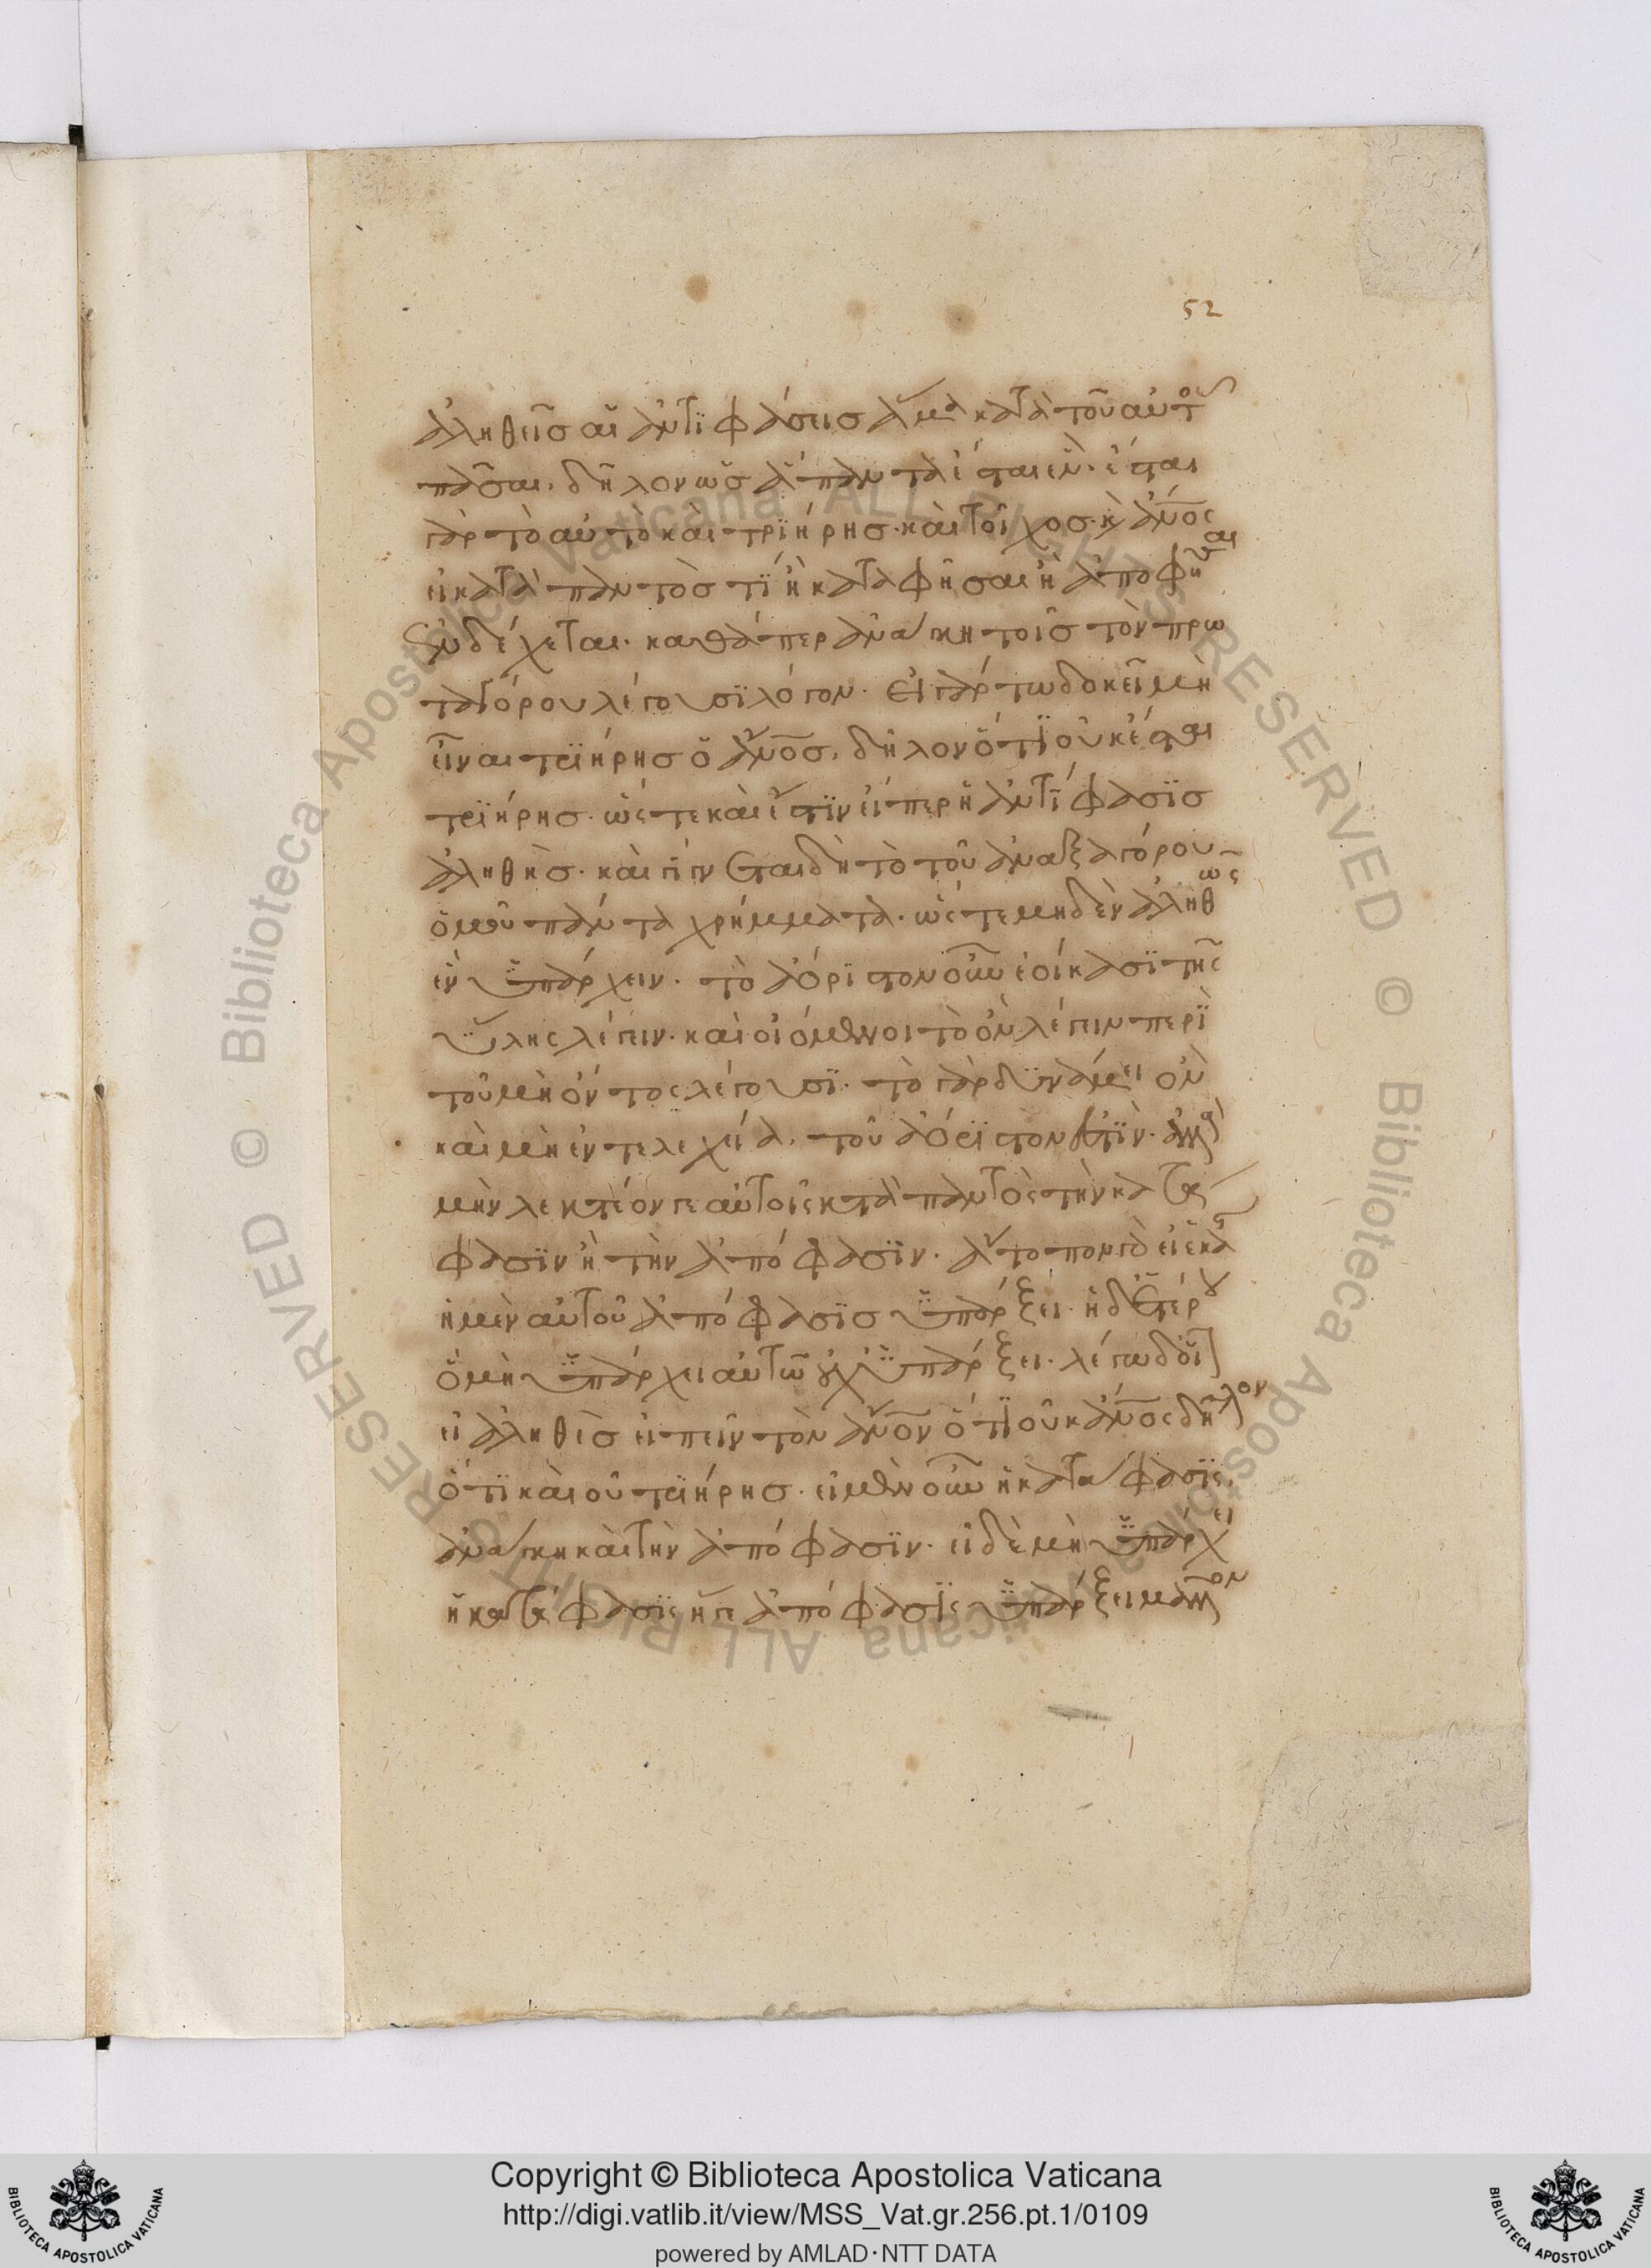 52
ἀληθεῖσ αἱ ἀντιφάσεισ ἅμα κατὰ τοῦ αὐτοῦ
πᾶσαι. δῆλον ὡσ ἅπαντα ἔσται ἕν. ἔσται
γὰρ τὸ αὐτὸ καὶ τριήρησ. καὶ τοῖχοσ. κ ἄνος
εἰ κατὰ παντόσ τι ἢ καταφῆσαι ἢ ἀποφῆσαι
ἐνδέχεται. καθάπερ ἀνάγκη τοῖσ τὸν πρω
ταγόρου λέγουσι λόγον. εἰ γάρ τω δοκεῖ μὴ
εἶναι τριήρησ ὁ ἄνοσ. δῆλον ὅτι οὐκ ἔσται
τριήρησ. ὥστε καὶ ἔστιν εἴπερ ἡ ἀντίφασισ
ἀληθήσ. καὶ γίγνεται δὴ τὸ τοῦ ἀναξαγόρου
ὁμοῦ πάντα χρήμματα. ὥστε μηδὲν ἀληθῶς
ἓν ὑπάρχειν. τὸ ἀόριστον οὖν ἐοίκασι τῆς
ὕλης λέγειν. καὶ οἰόμενοι τὸ ὂν λέγειν περὶ
τοῦ μὴ ὄντος λέγουσι. τὸ γὰρ δυνάμει ὂν
καὶ μὴ ἐντελεχεία. τοῦ ἀόριστον ἐστὶν. ἀλλὰ
μὴν λεκτέον γε αὐτοῖς κατὰ παντὸς τὴν κατά
φασιν ἢ τὴν ἀπόφασιν. ἄτοπον γὰρ εἰ ἑκά
ἡ μὲν αὐτοῦ ἀπόφασισ ὑπάρξει. ἡ δ' ἑτέρου
ὃ μὴ ὑπάρχει αὐτῶ οὐχ ὑπάρξει. λέγω δ' οἷ
εἰ ἀληθὲσ εἰπεῖν τὸν ἄνον ὅτι οὐκ ἄνοσ δῆλον
ὅτι καὶ οὐ τριήρησ. εἰ μὲν οὖν ἡ κατάφασις.
ἀνάγκη καὶ τὴν ἀπόφασιν. εἰ δὲ μὴ ὑπάρχει
ἡ κατάφασις ἥ γε ἀπόφασις ὑπάρξει μᾶλλον
Copyright © Biblioteca Apostolica Vaticana
http://digi.vatlib.it/view/MSS_Vat.gr.256.pt.1/0109
powered by AMLAD·NTT DATA